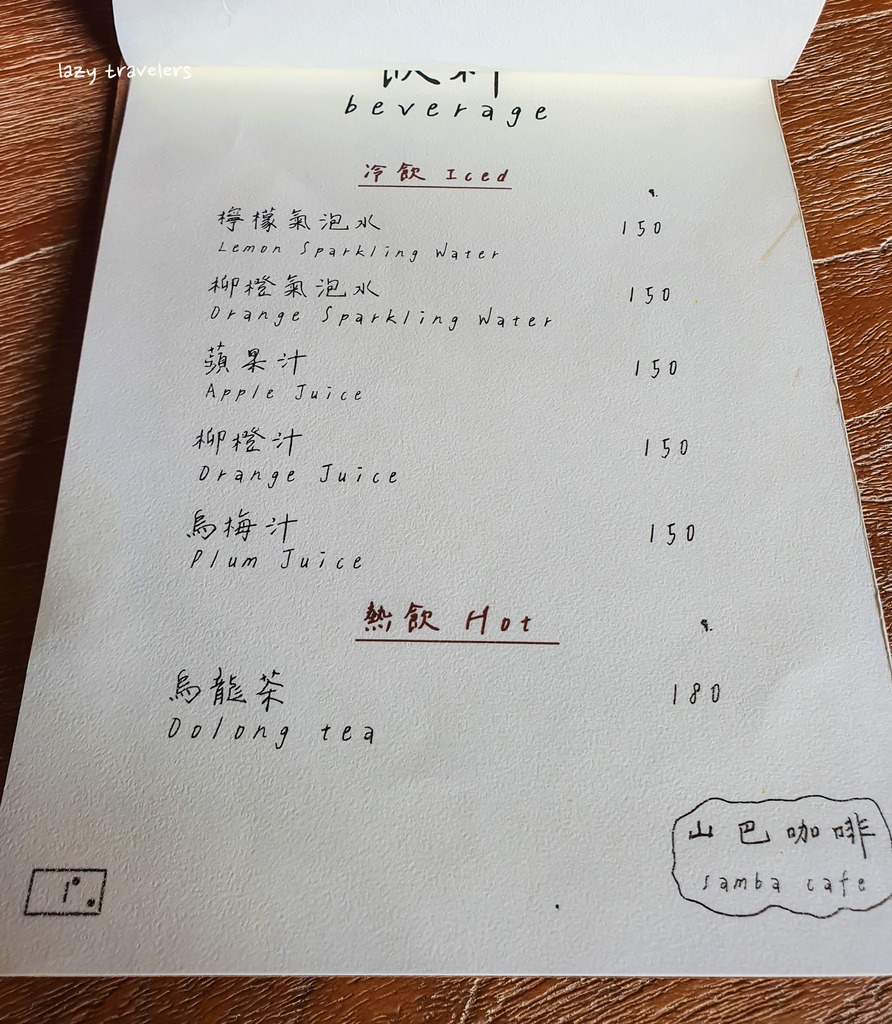 lazy travelers
飲料
beverage
冷飲 Iced
檸檬氣泡水 150
Lemon Sparkling Water
柳橙氣泡水 150
Orange Sparkling Water
蘋果汁 150
Apple Juice
柳橙汁 150
Orange Juice
烏梅汁 150
Plum Juice
熱飲 Hot
烏龍茶 180
Oolong tea
山巴咖啡
samba cafe